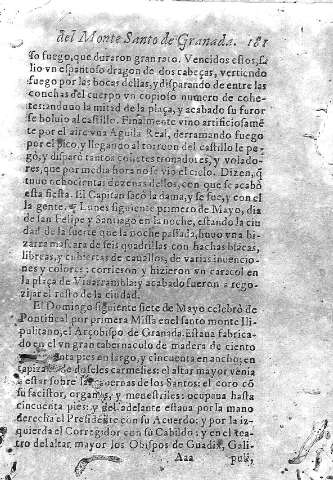 del Monte Santo de Granada. 181
to fuego, que duraron gran rato. Vencidos estos, sa
lio vn espantoso dragon de dos cabeças, vertiendo
fuego por las bocas dellas, y disparando de entre las
conchas del cuerpo vn copioso numero de cohe-
tes: anduuo la mitad de la plaça, y acabado su furor
se boluio al castillo. Finalmente vino artificiosamē
te por el aire vna Aguila Real, derramando fuego
por el pico, y llegando al torreon del castillo le pe-
gò, y disparò tantos cohetes tronadores, y volado-
res, que por media hora no se vio el cielo. Dizen, q̃
tuuo ochocientas dozenas dellos, con que se acabò
esta fiesta. El Capitan sacò la dama, y se fue, y con el
la gente. Lunes siguiente primero de Mayo, dia
de san Felipe y Santiago en la noche, estando la ciu
dad de la suerte que la noche passada, huuo vna bi-
zarra mascara de seis quadrillas con hachas blācas,
libreas, y cubiertas de cauallos, de varias inuencio-
nes y colores: corrieron y hizieron vn caracol en
la plaça de Viuarrambla: y acabado fueron a rego-
zijar el resto de la ciudad.
El Domingo siguiente siete de Mayo celebrò de
Pontifical por primera Missa en el santo monte Ili-
pulitano, el Arçobispo de Granada. Estaua fabrica-
do en el vn gran tabernaculo de madera de ciento
pies en largo, y cincuenta en ancho; en
tapizado de doseles carmesies: el altar mayor venia
a estar sobre las cauernas de los Santos: el coro cō
su facistor, organos, y menestriles: ocupaua hasta
cincuenta pies: y del adelante estaua por la mano
derecha el Presidente con su Acuerdo: y por la iz-
quierda el Corregidor con su Cabildo: y en el tea-
tro del altar mayor los Obispos de Guadix, Gali-
Aaa puli,